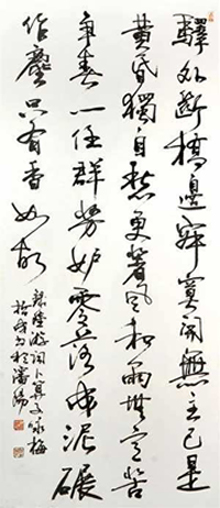 驛外斷橋邊寂寞開無主已是
黃昏獨自愁更著風和雨無意苦
爭春一任群芳妒零落成泥碾
作塵只有香如故
錄陸游词卜算子咏梅
於瀋陽